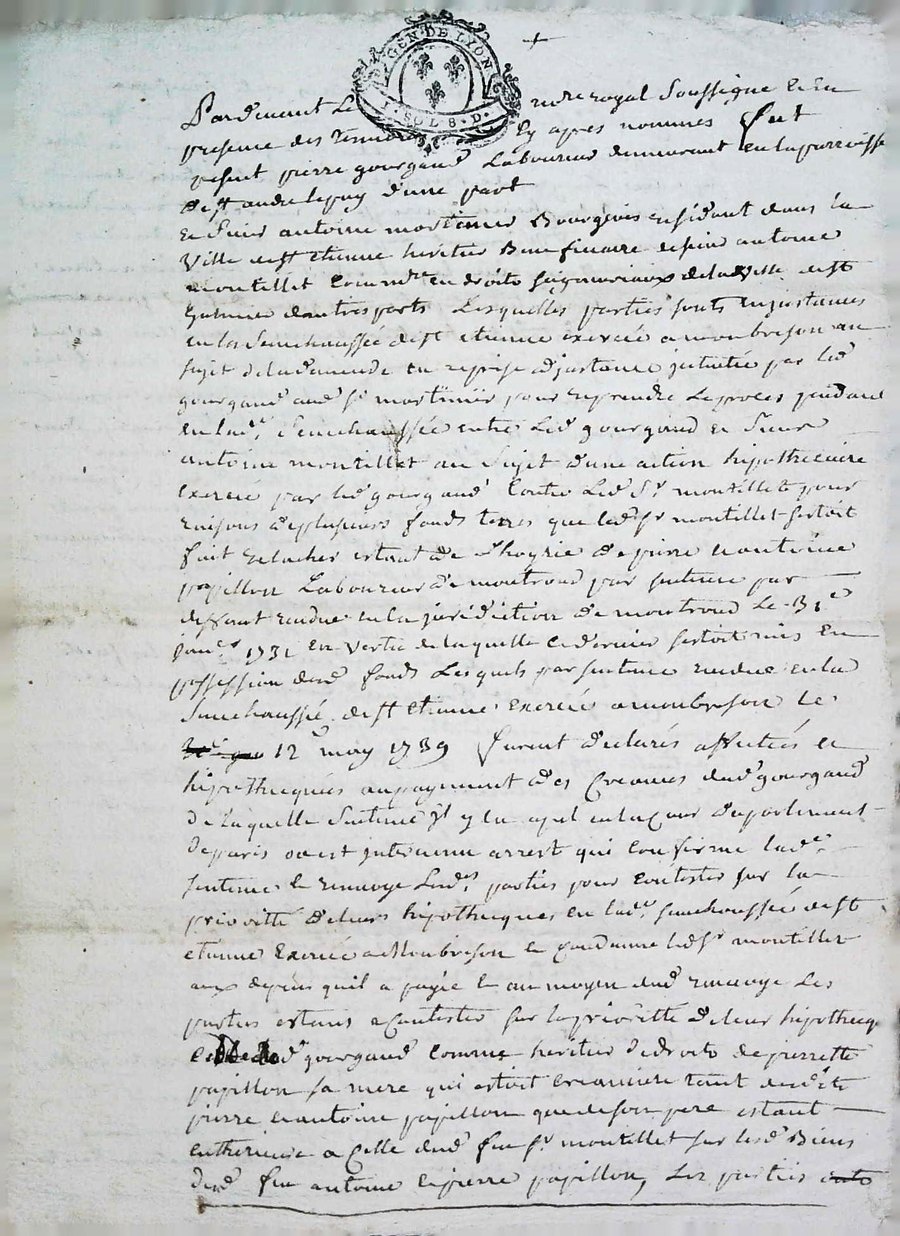 GEN. DE LYON
1. SOL 8. D.
Pardevant Le no.re royal Soussigné et En
presence des temoins Cy apres nommes fut
present pierre gourgaud Laboureur demeurant en la parroisse
de st andre le puy d'une part
Et Sieur antoine mortinier Bourgeois residant dans la
Ville de st Etienne heritier Beneficiaire de sieur antoine
montillet Comm.re en droits seigneuriaux de la Ville de st
galmier d'autres parts Lesquelles parties sonts en jnstances
en la Senechaussée de st etienne exercée a monbreson au
sujet de la demande en reprise d'jnstance jntentée par led.
gourgaud aud. sr. mortinier pour reprendre Le proces pendant
en lad. Senechaussée entre Led. gourgaud et Sieur
antoine montillet au Sujet d'une action hipothecaire
Exercée par led. gourgaud Contre Led. Sr. montillet pour
raisons de plusieurs fonds terres que led. sr montillet s'estoit
fait relacher estant de l'hoyrie de pierre et antoine
papillon Laboureur de montrond par sentence par
deffaut rendue en la juridiction de montrond Le 31e
janv.r 1731 En vertu de laquelle ce dernier s'estoit mis En
possession desd. fonds Lesquels par sentence rendue en la
Senechaussée de st Etienne Exercée a monbreson le
12 may 1739 furent declarés affectés et
hipothecquées au payement des Creances dud. gourgaud
de Laquelle Sentence jl y eu apel en la Cour du parlement
de paris ou est jntervenu arrest qui confirme lad.
sentence et renvoye Lesd. parties pour contester sur la
priorité de leurs hipothecques en lad. senechaussée de st
etienne Exercée a Monbreson et Condamne led. sr. montillet
aux depens quil a payée et au moyen dud. renvoye Les
parties estans a Contester sur la priorité de leur hipothecq
Led. gourgaud comme heritier de droits de pierrette
papillon sa mere qui estoit creanciere tant desdits
pierre et antoine papillon que de son pere estant
antherieure a Celle dud. feu sr. montillet sur lesd. Biens
desd. feu antoine et pierre papillon, Les parties